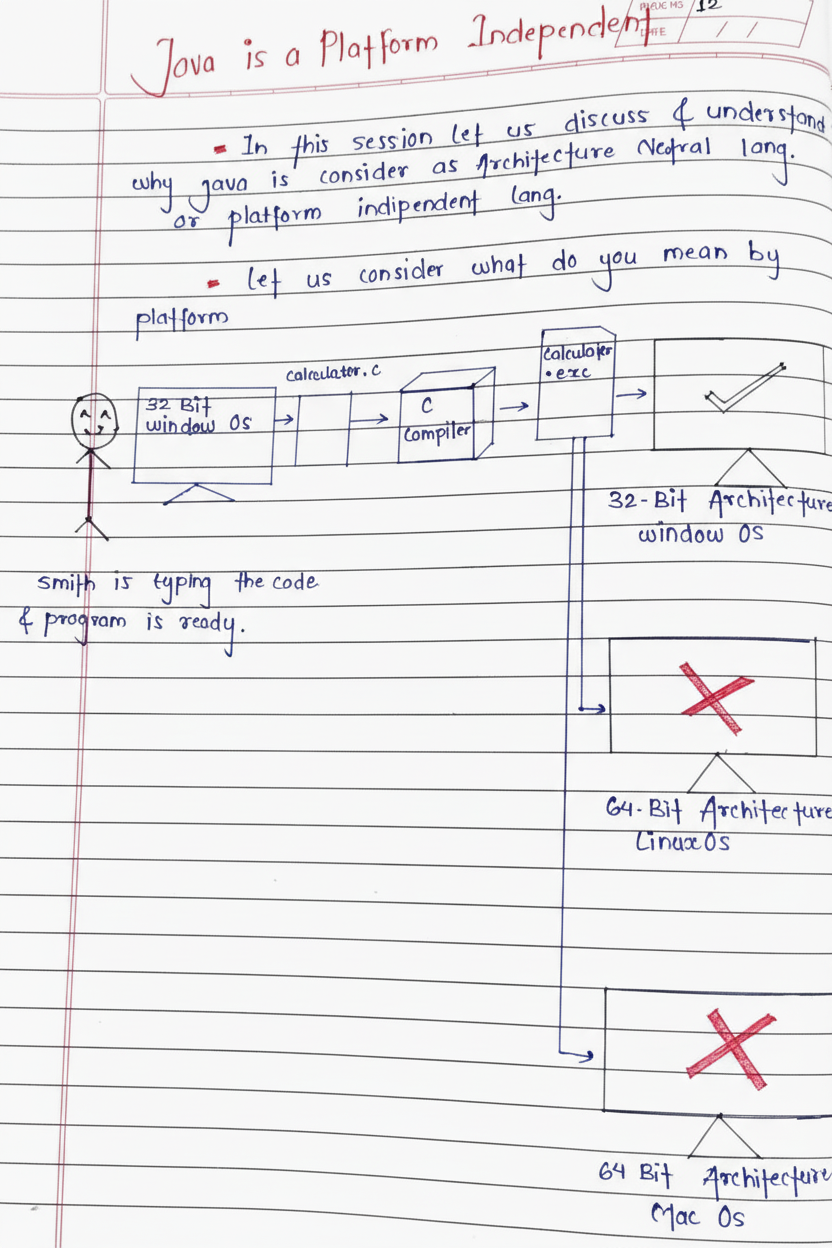 PAGE NO
12
DATE / /
Java is a Platform Independent
In this session let us discuss & understand
why java is consider as Architecture Neṭral lang.
or platform indipendent lang.
let us consider what do you mean by
platform
calculator.c
32 Bit
window Os
C
compiler
calculater
.exc
32-Bit Architecture
window OS
smith is typing the code
& program is ready.
64-Bit Architecture
Linux Os
64 Bit Architecture
Mac Os